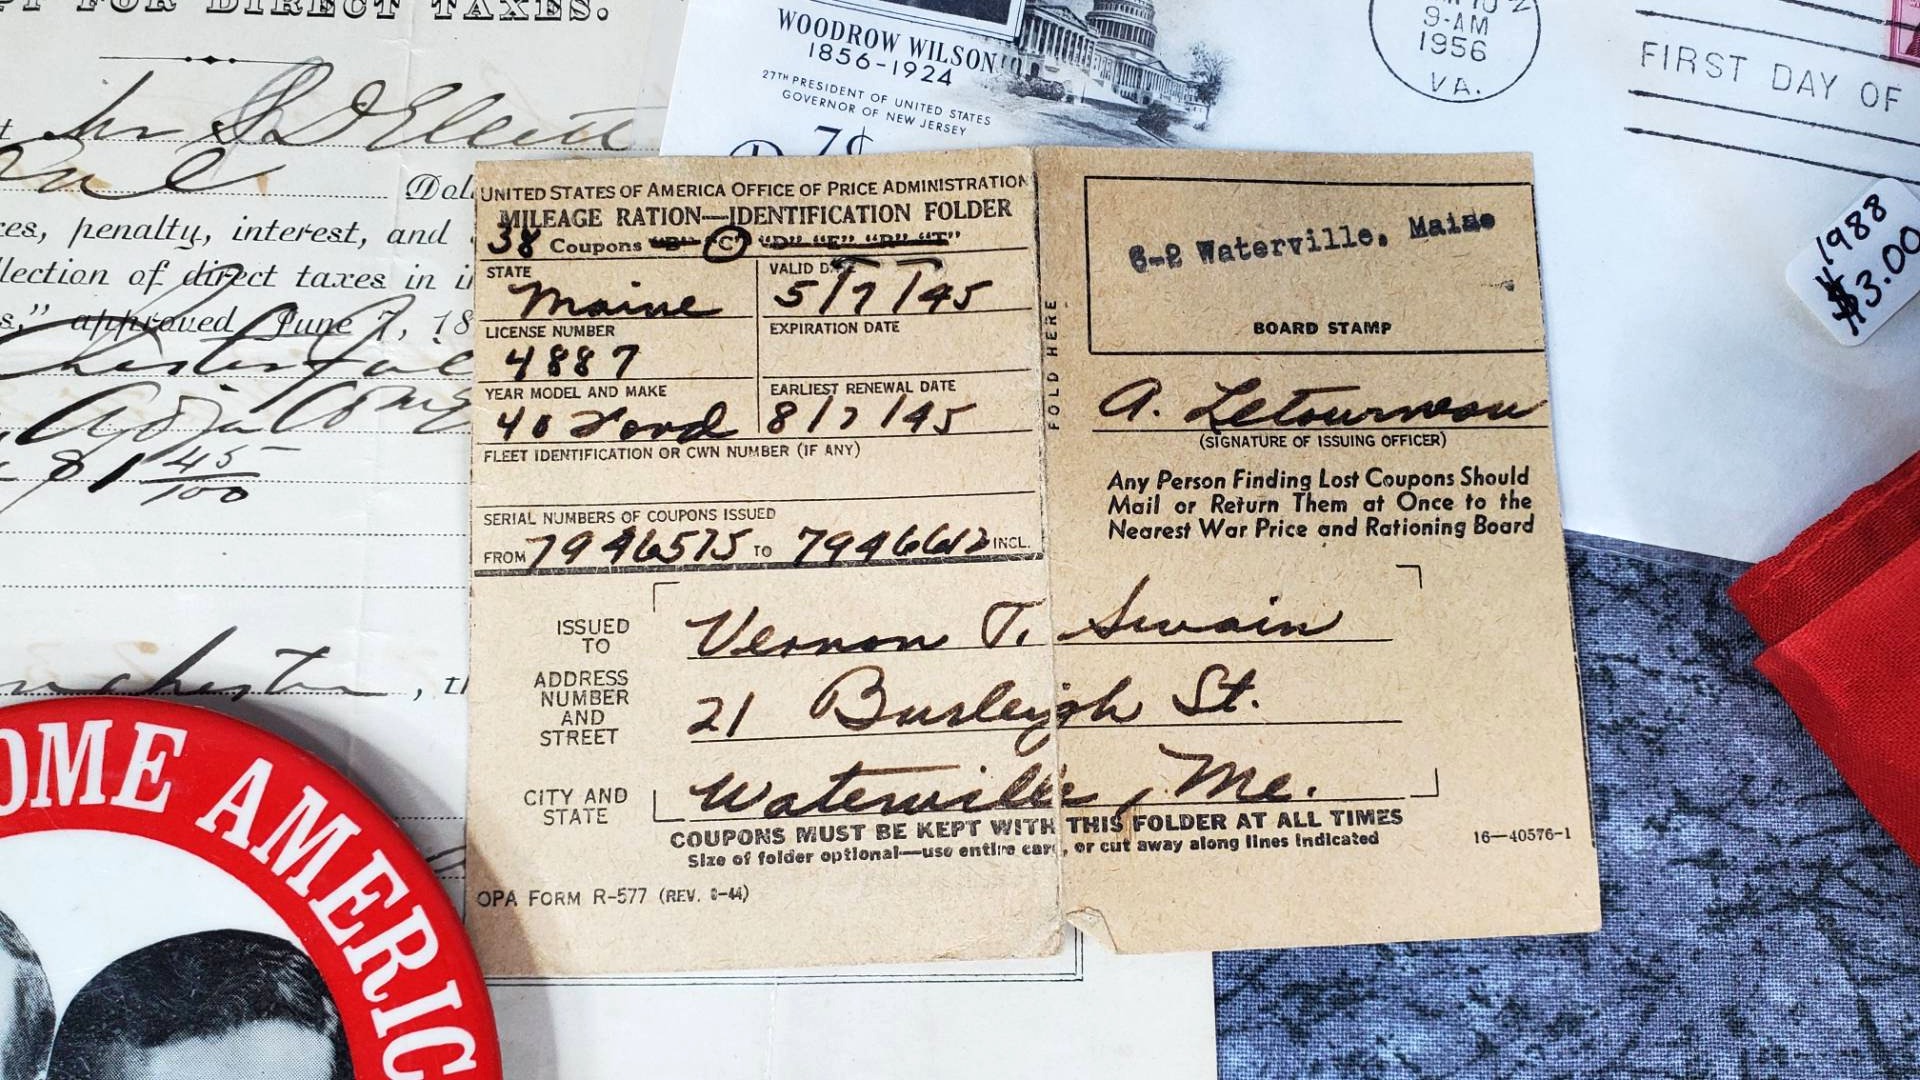 FOR DIRECT TAXES.
Dol
penalty, interest, and
of direct taxes in
approved June 7, 18
45
100
WOODROW WILSON
1856-1924
27TH PRESIDENT OF UNITED STATES
GOVERNOR OF NEW JERSEY
7¢
9-AM
1956
VA.
FIRST DAY OF
1988
$3.00
UNITED STATES OF AMERICA OFFICE OF PRICE ADMINISTRATION
MILEAGE RATION—IDENTIFICATION FOLDER
38 Coupons "B" "C" "D" "E" "R" "T"
STATE
Maine
VALID
5/7/45
LICENSE NUMBER
4887
EXPIRATION DATE
YEAR MODEL AND MAKE
40 Ford
EARLIEST RENEWAL DATE
8/7/45
FLEET IDENTIFICATION OR CWN NUMBER (IF ANY)
SERIAL NUMBERS OF COUPONS ISSUED
FROM 7946575 TO 7946612 INCL.
FOLD HERE
6-2 Waterville, Maine
BOARD STAMP
A. Letourneau
(SIGNATURE OF ISSUING OFFICER)
Any Person Finding Lost Coupons Should
Mail or Return Them at Once to the
Nearest War Price and Rationing Board
ISSUED TO
Vernon T. Swain
ADDRESS NUMBER AND STREET
21 Burleigh St.
CITY AND STATE
Waterville, Me.
COUPONS MUST BE KEPT WITH THIS FOLDER AT ALL TIMES
Size of folder optional—use entire card, or cut away along lines indicated
16—40576-1
OPA FORM R-577
OME AMERIC